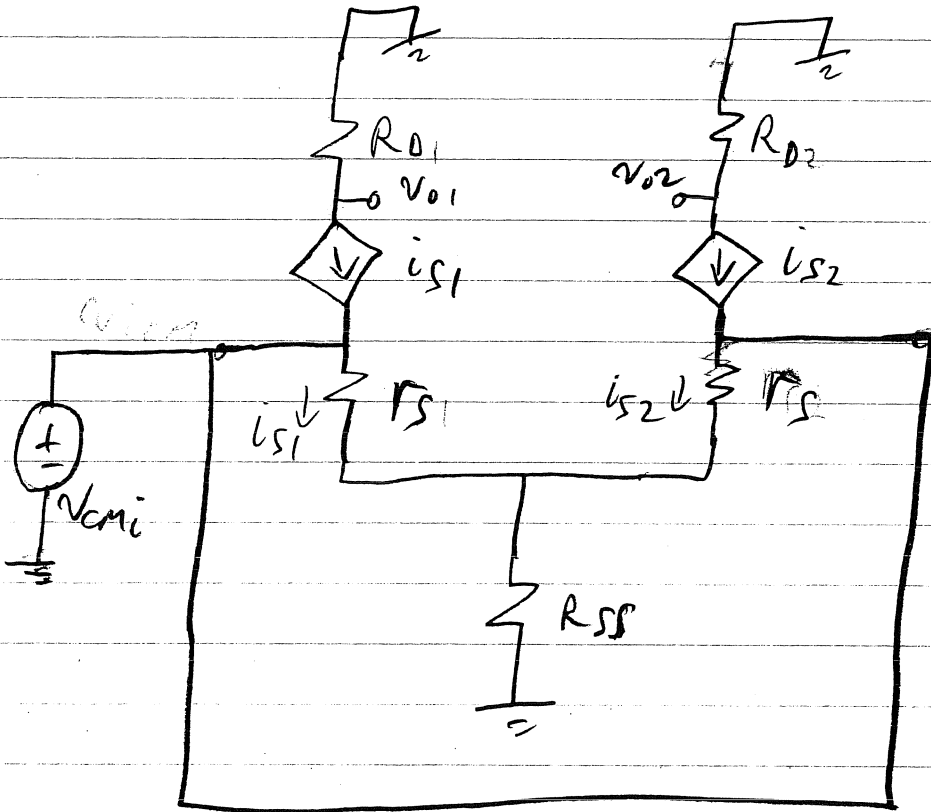 R_D1
v_o1
R_D2
v_o2
i_s1
i_s2
r_s
i_s1
i_s2
r_s
+
−
v_cmi
R_SS